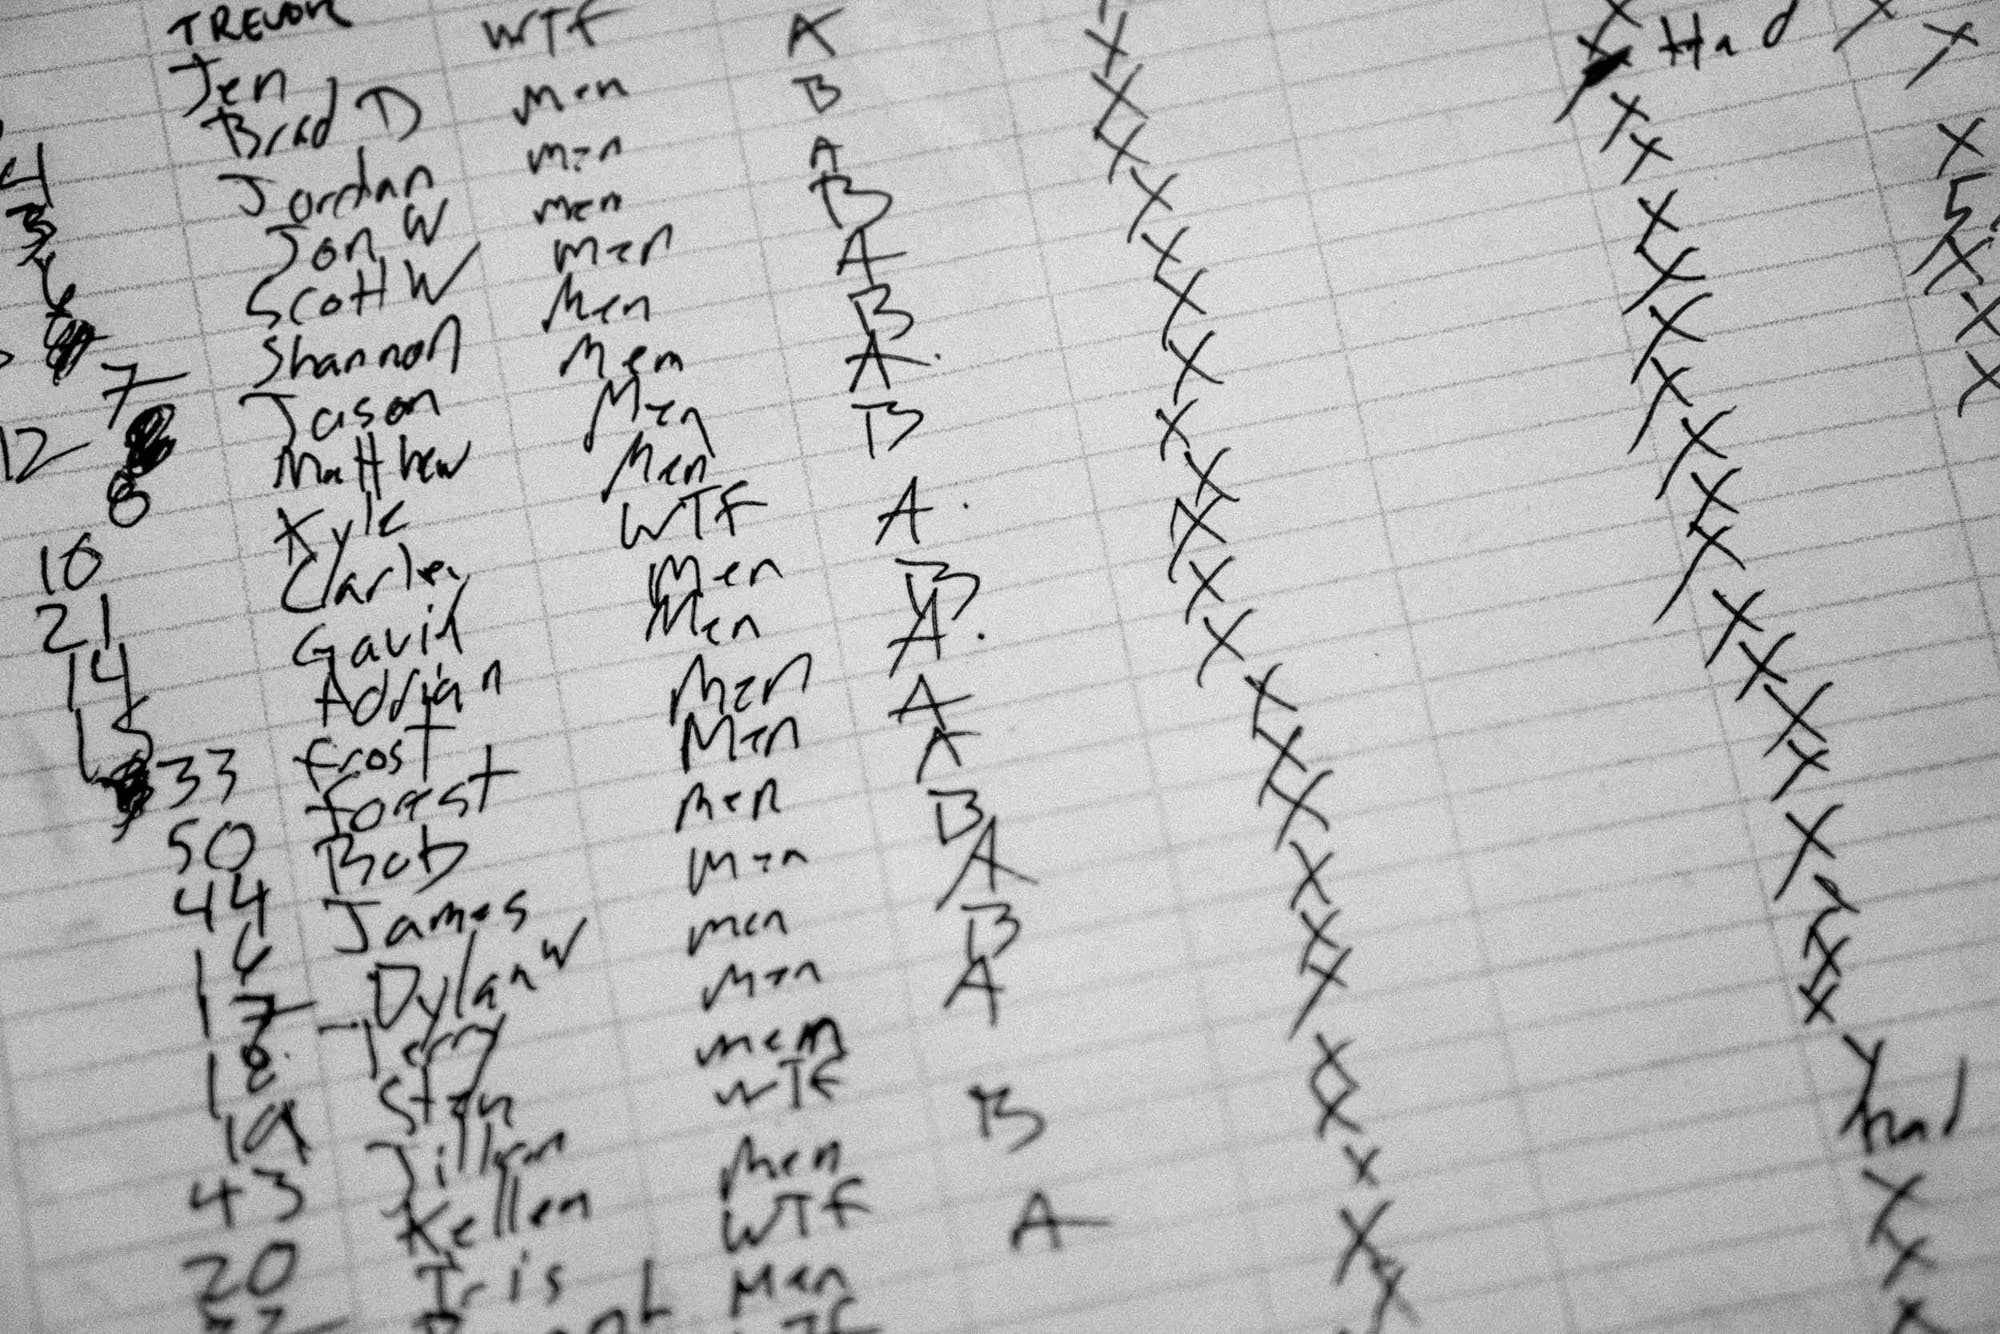 TREVOR
Jen WTF
Brad D Men A X Had X X
4 Jordan men B X X
3 Jon W men A X X X
6 Scott W men B X X
7 Shannon Men A X X X
12 Jason Mem B X X X
8 Matthew Men A. X X X
10 Kyle Men B X X
21 Carley WTF X X
14 Gavin Men A. X X
15 Adrian Men B X X
33 Frost Men A. X X
50 Forest Men A X X
44 Bob men A X X
16 James men B X X
17 Dylan W men A X X
18 Terry men B X X
19 Stan mem A X X
43 Jillian WTF X X
20 Kellen Men B X had
Iris WTF X X
Men A X X
WTF X X